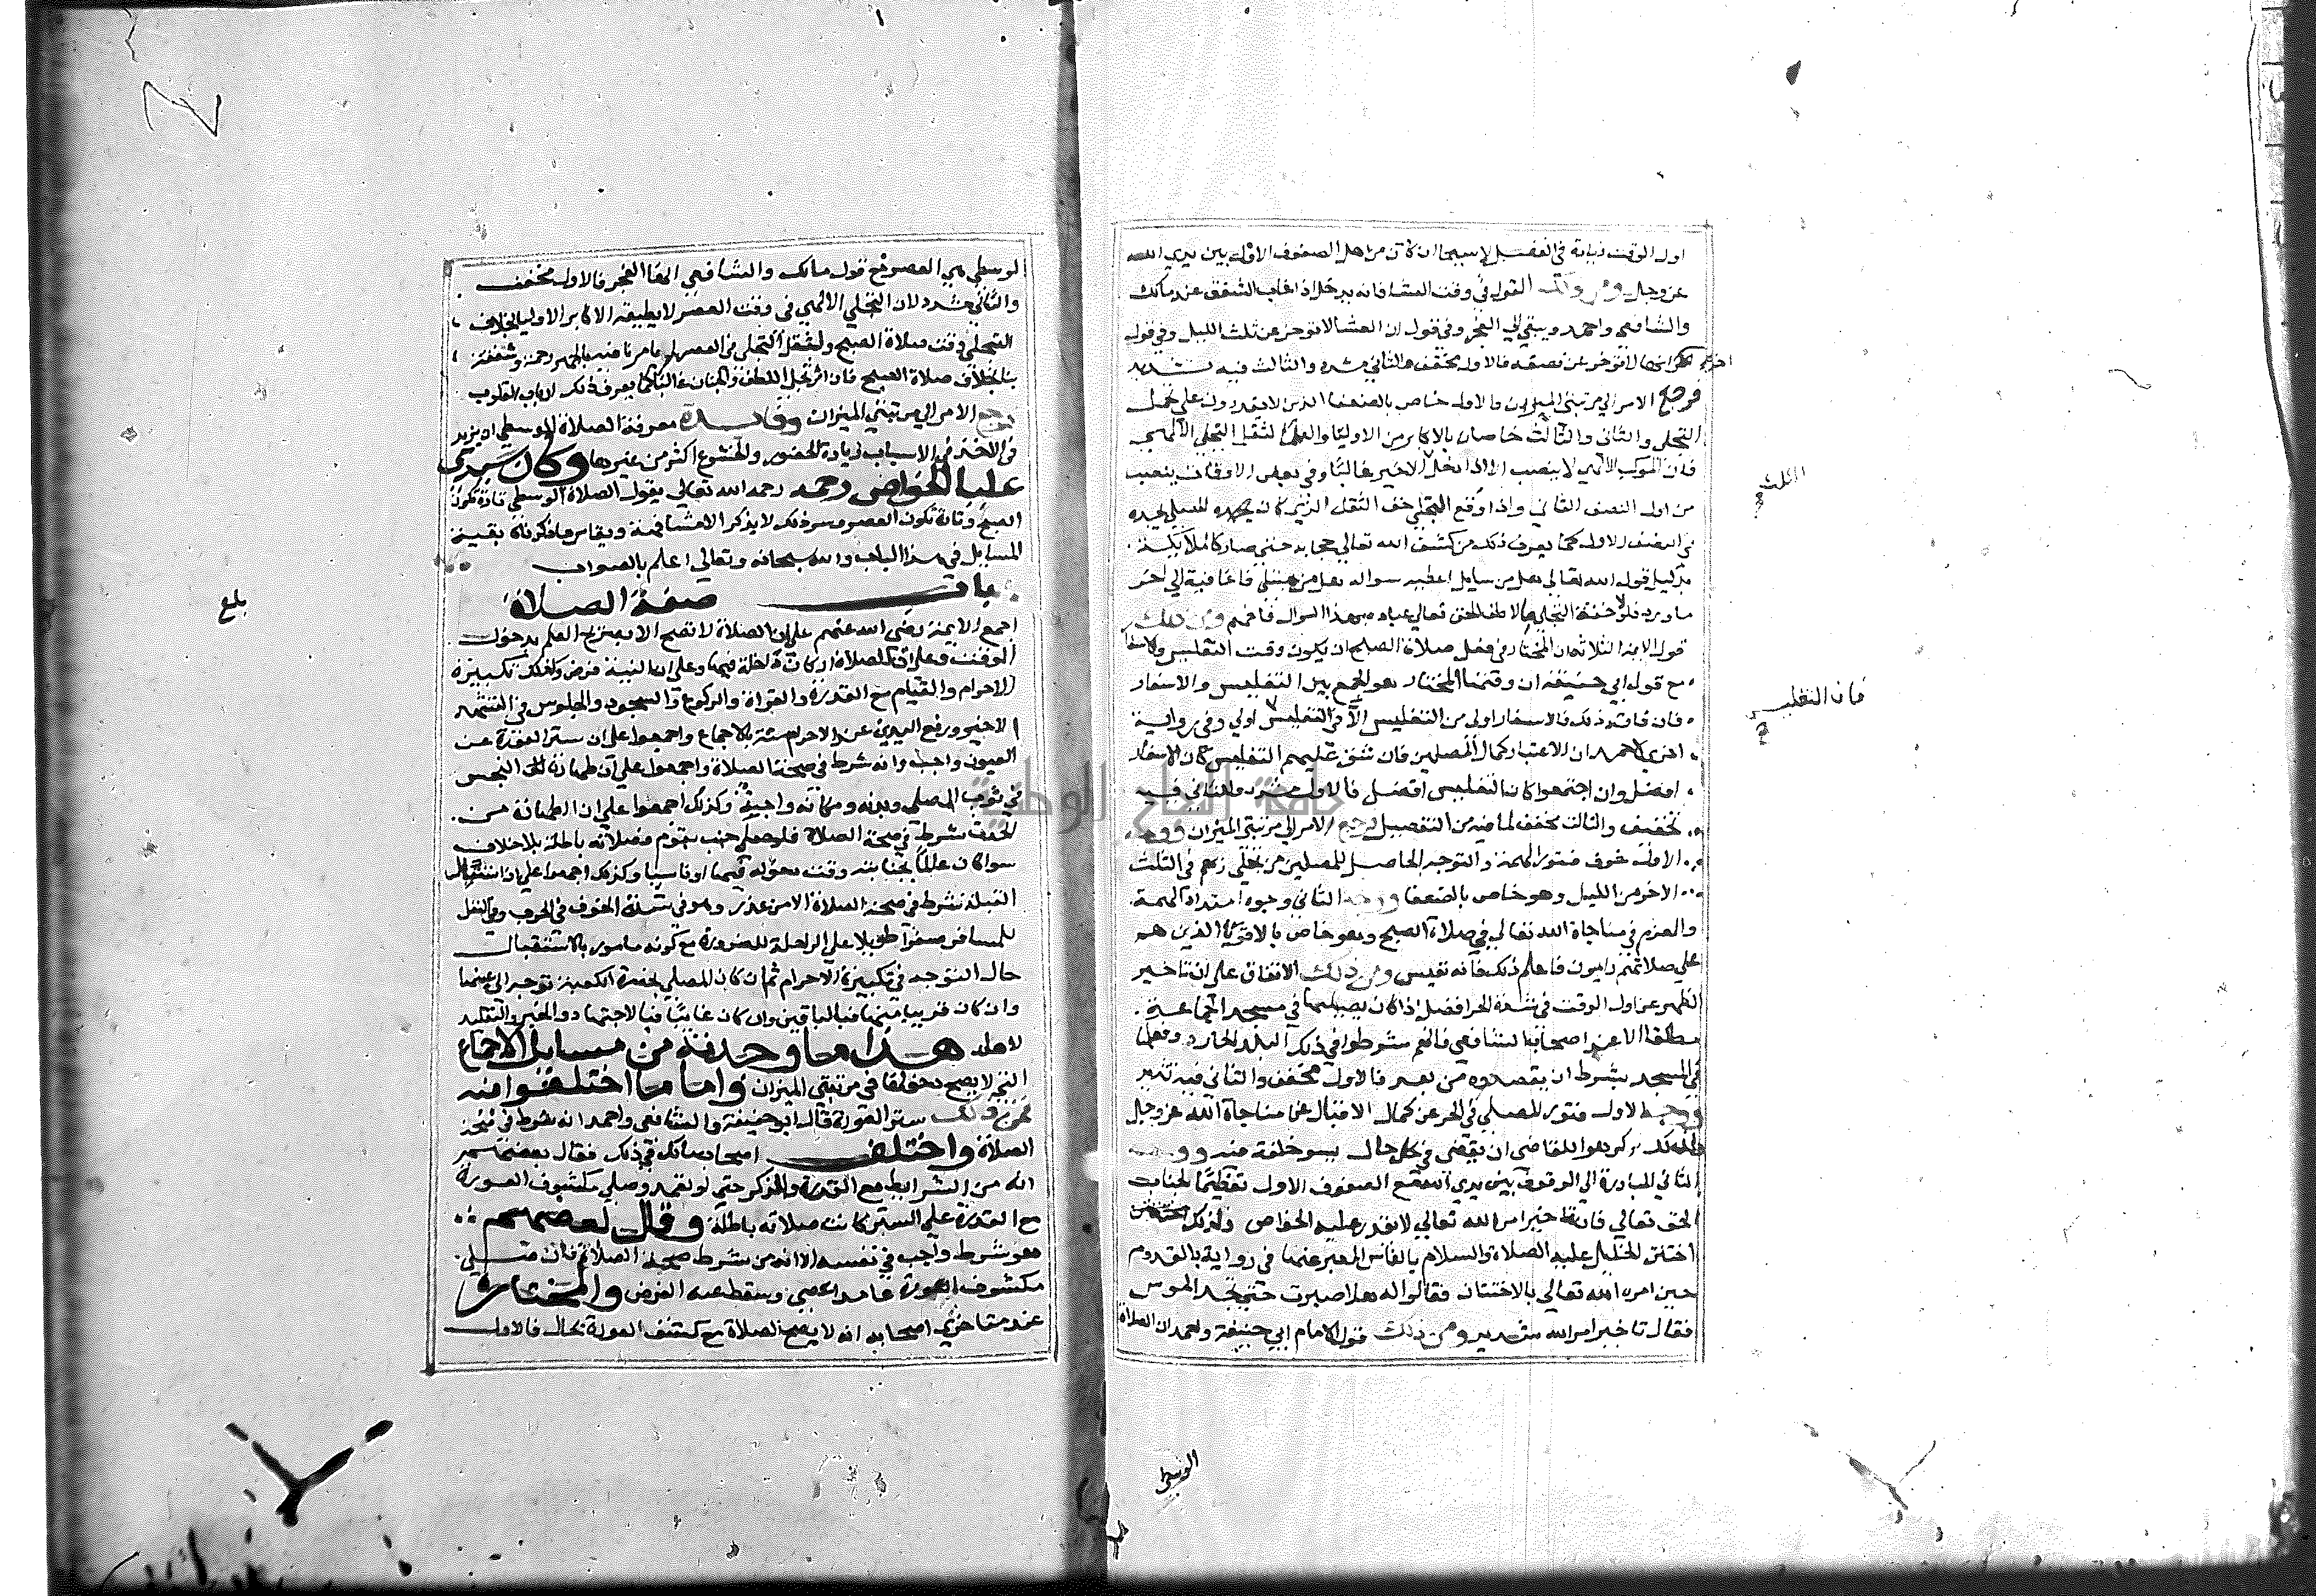 اول الوقت زيادة في الفضل لا سيما ان كان من اهل الصفوف الاول بين يدي الله
عز وجل ومن ذلك القول في وقت العشا فانه يدخل اذا غاب الشفق عند مالك
والشافعي واحمد ويبقي الي الفجر وفي قول ان العشا لا تؤخر عن ثلث الليل وفي قول
اخر انها لا تؤخر عن نصفه فالاول مخفف والثاني مشدد والثالث فيه تشديد
فرجع الامر الي مرتبتي الميزان فالاول خاص بالضعفا الذين لا يقدرون علي تحمل
التجلي والثاني والثالث خاصان بالاكابر من الاوليا والعلما لثقل التجلي الالهي
فان الموكب الالهي لا ينصب الا اذا دخل الاخير غالبا وفي بعض الاوقات ينصب
الثلث
من اول النصف الثاني واذا وقع التجلي خف الثقل الذي كان يجده المصلي
في النصف الاول كما يعرف ذلك من كشف الله تعالي حجابه حتي صار كالملائكة
بدليل قوله الله تعالي هل من سايل اعطيه سواله هل من مبتلي فاعافيه الي اخر
ما ورد فلولا خفة التجلي ما لاطف الحق تعالي عباده بهذا السوال فافهم ومن ذلك
قول الايمة الثلاثة ان المختار في فعل صلاة الصبح ان يكون وقت التغليس
مع قول ابي حنيفة ان وقتها المختار هو الجمع بين التغليس والاسفار
فان فاته ذلك فالاسفار اولي من التغليس الا التغليس اولي وفي رواية
فان التغليس
اخري لاحمد ان الاعتبار بحال المصلين فان شق عليهم التغليس كان الاسفار
افضل وان اجتمعوا كان التغليس افضل فالاول مشدد والثاني فيه
تخفيف والثالث مخفف لما فيه من التفصيل فرجع الامر الي مرتبتي الميزان ووجه
الاول خوف فتور الهمة والتوجه الحاصل للمصلين من تجلي ربهم في الثلث
الاخر من الليل وهو خاص بالضعفا ووجه الثاني وجوه امتداد الهمة
والعزم في مناجاة الله تعالي في صلاة الصبح وهو خاص بالاقويا الذين هم
علي صلاتهم دايمون فاعلم ذلك فانه نفيس ومن ذلك الاتفاق علي ان تاخير
الظهر عن اول الوقت في شدة الحر افضل اذا كان يصليها في مسجد الجماعة
مطلقا الا عند اصحاب الشافعي فانهم شرطوا في ذلك البلد الحارة وفعلها
في المسجد بشرط ان يقصدوه من بعد فالاول مخفف والثاني فيه تشديد
ووجه الاول فتور المصلي في الحر عن كمال الاقبال علي مناجاة الله عز وجل
ولذلك كرهوا للقاضي ان يقضي في كل حال يسو خلقه فيه ووجه
الثاني المبادرة الي الوقوف بين يدي الله مع الصفوف الاول تعظيما لجناب
الحق تعالي فان تاخير امر الله تعالي لا يقدر عليه الخواص ولذلك
اختتن الخليل عليه الصلاة والسلام بالفاس المعبر عنها في رواية بالقدوم
حين امره الله تعالي بالاختتان فقالوا له هلا صبرت حتي تجد الموس
فقال تاخير امر الله شديد ومن ذلك قول الامام ابي حنيفة واحمد ان الصلاة
الوسطي
الوسطي هي العصر مع قول مالك والشافعي انها الفجر فالاول مخفف
والثاني مشدد لان التجلي الالهي في وقت العصر لا يطيقه الا كابر الاوليا بخلاف
التجلي وقت صلاة الصبح ولثقل التجلي في العصر رحمة وشفقة
بنا بخلاف صلاة الصبح فان اثر تجلي اللطف والحنان غالبا كما يعرف ذلك ارباب القلوب
فرجع الامر الي مرتبتي الميزان وفايدة معرفة الصلاة الوسطي ان يزيد
في الاخذ في الاسباب لزيادة الحضور والخشوع اكثر من غيرها وكان سيدي
عليا الخواص رحمه رحمه الله تعالي يقول الصلاة الوسطي تارة تكون
الصبح وتارة تكون العصر وسر ذلك لا يذكر الا مشافهة ويقاس ما ذكرناه بقية
المسايل في هذا الباب والله سبحانه وتعالي اعلم بالصواب
باب صفة الصلاة
بلغ
اجمع الايمة رضي الله عنهم علي ان الصلاة لا تصح الا بعد العلم بدخول
الوقت وعلي ان للصلاة اركانا داخلة فيها وعلي ان النية فرض وكذلك تكبيرة
الاحرام والقيام مع القدرة والقراة والركوع والسجود والجلوس في التشهد
الاخير ورفع اليدين عند الاحرام سنة بالاجماع واجمعوا علي ان ستر العورة عن
العيون واجب وانه شرط في صحة الصلاة واجمعوا علي ان طهارة النجس
في ثوب المصلي وبدنه ومكانه واجبة وكذلك اجمعوا علي ان الطهارة من
الحدث شرط في صحة الصلاة فلو صلي جنب بقوم فصلاته باطلة بلا خلاف
سوا كان عالما بجنابته وقت دخوله فيها او ناسيا وكذلك اجمعوا علي ان استقبال
القبلة شرط في صحة الصلاة الا من عذر وهو في شدة الخوف في الحرب وفي النفل
للمسافر سفرا طويلا علي الراحلة للضرورة مع كونه مامور بالاستقبال
حال التوجه في تكبيرة الاحرام ثم ان كان المصلي بحضرة الكعبة توجه الي عينها
وان كان قريبا منها فباليقين وان كان غايبا فبالاجتهاد والخبر والتقليد
لاهله هذا ما وجدته من مسايل الاجماع
التي لا يصح دخولها في مرتبتي الميزان واما ما اختلفوا فيه
فمن ذلك ستر العورة قال ابو حنيفة والشافعي واحمد انه شرط في صحة
الصلاة واختلف اصحاب مالك في ذلك فقال بعضهم
انه من الشرايط مع القدرة والذكر حتي لو تعمد وصلي مكشوف العورة
مع القدرة علي الستر كانت صلاته باطلة وقال بعضهم
هو شرط واجب في نفسه الا انه من شرط صحة الصلاة فان صلي
مكشوف العورة عامدا عصي وسقط عنه الفرض والمختار
عند متاخري اصحابه انه لا يصح الصلاة مع كشف العورة بحال فالاول
جامعة النجاح الوطنية